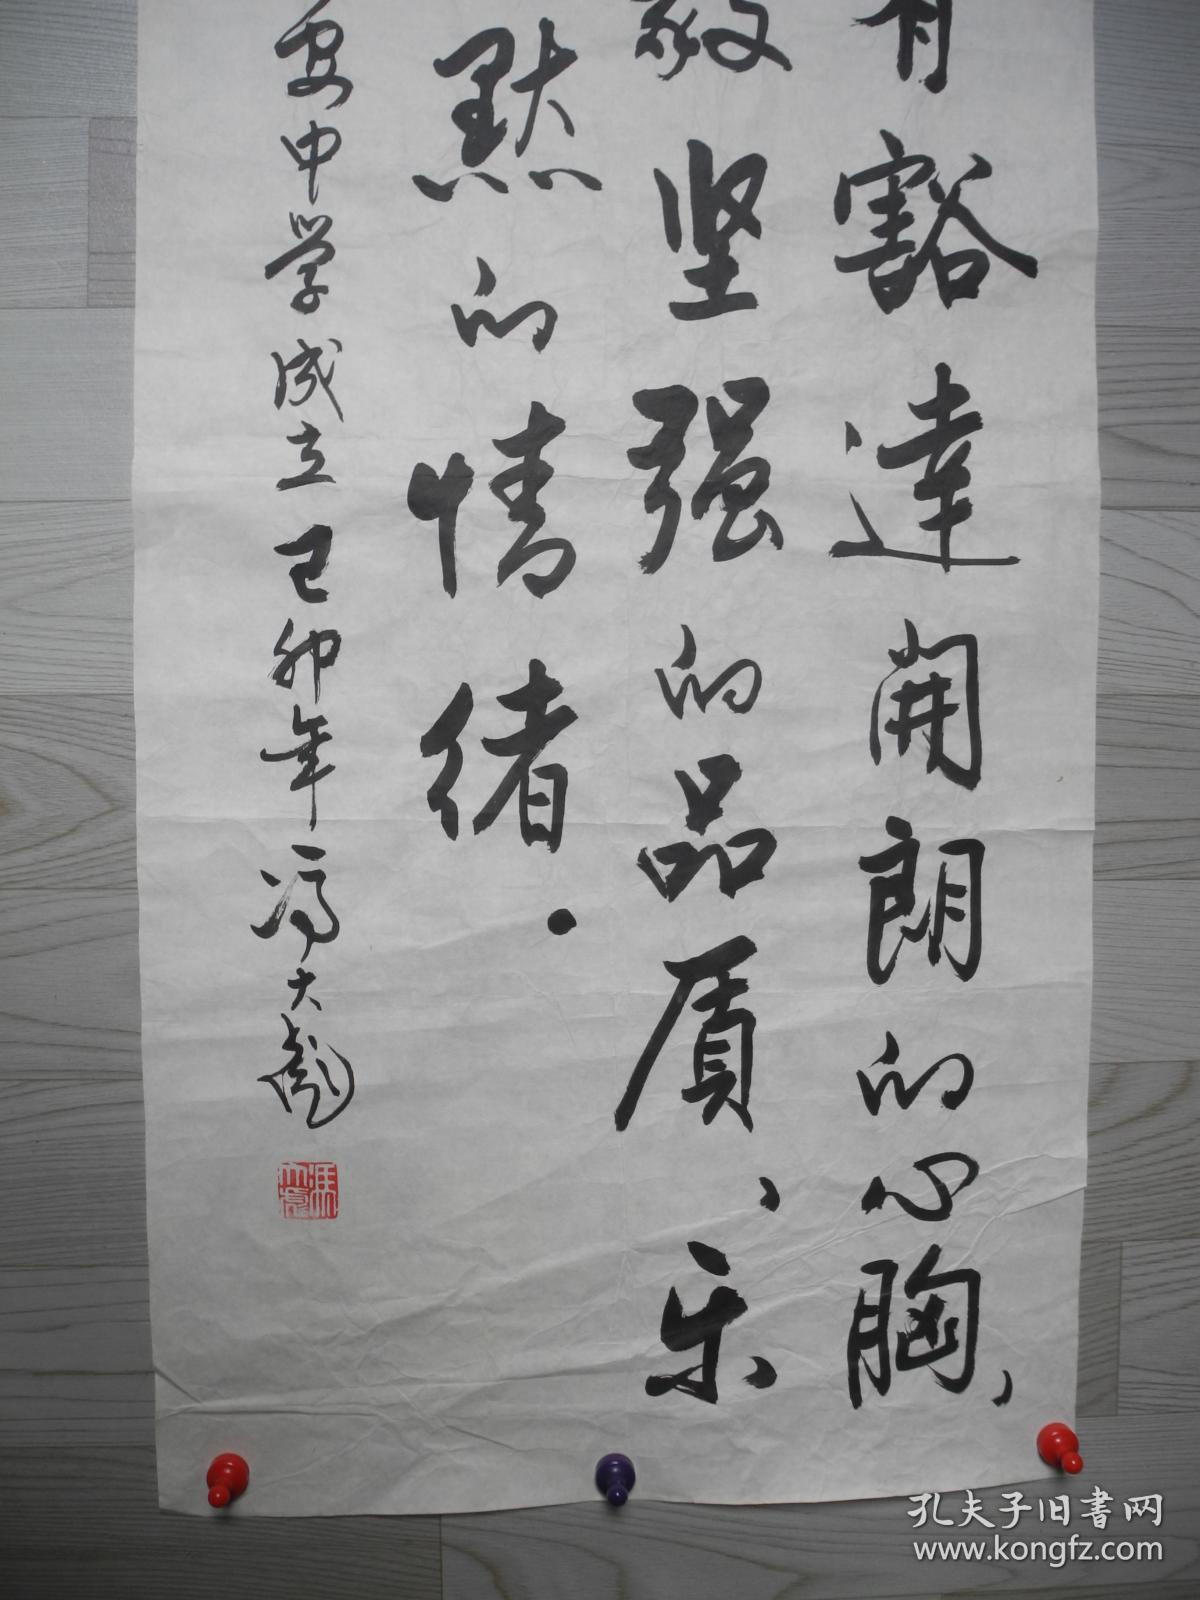 有豁達開朗的心胸、
毅坚强的品质、乐
默的情绪。
中学成立己卯年冯大彪
馮大彪
孔夫子旧書网
www.kongfz.com